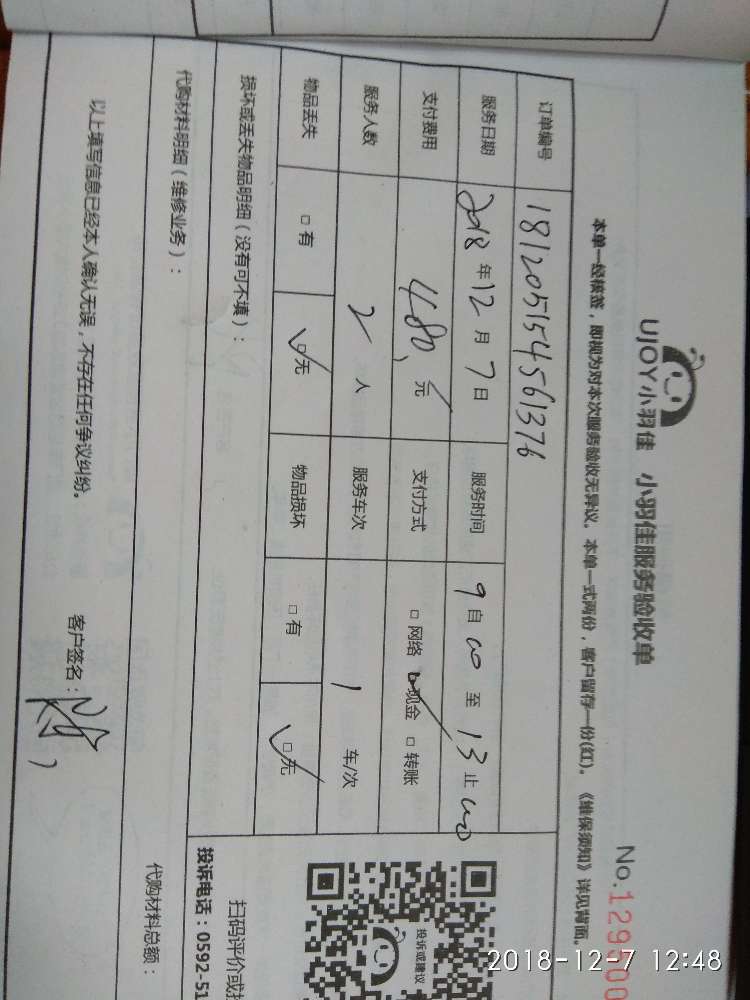 UJOY小羽佳 小羽佳服务验收单
No.129500
本单一经核签，即视为对本次服务验收无异议。本单一式两份，客户留存一份(红)。《维保须知》详见背面。
订单编号 181205154561376
服务日期 2018年12月7日 服务时间 9自00至13止00
支付费用 480元 支付方式 □网络 ☑现金 □转账
服务人数 2人 服务车次 1车/次
物品丢失 □有 ☑无 物品损坏 □有 ☑无
损坏或丢失物品明细（没有可不填）：
投诉或建议
扫码评价或
投诉电话：0592-51
代购材料明细（维修业务）：
代购材料总额：
以上填写信息已经本人确认无误，不存在任何争议纠纷。
客户签名：
2018-12-7 12:48